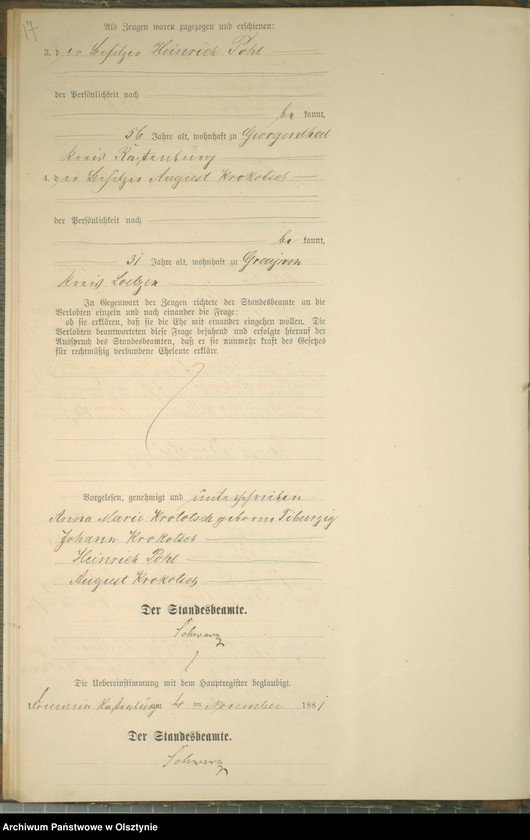 17
Als Zeugen waren zugezogen und erschienen:
3. der Besitzer Heinrich Pohl
der Persönlichkeit nach
be kannt,
56 Jahre alt, wohnhaft zu Georgenthal
Kreis Rastenburg
4. der Besitzer August Krokotsch
der Persönlichkeit nach
be kannt,
31 Jahre alt, wohnhaft zu
Kreis Loetzen
In Gegenwart der Zeugen richtete der Standesbeamte an die
Verlobten einzeln und nach einander die Frage:
ob sie erklären, daß sie die Ehe mit einander eingehen wollen. Die
Verlobten beantworteten diese Frage bejahend und erfolgte hierauf der
Ausspruch des Standesbeamten, daß er sie nunmehr kraft des Gesetzes
für rechtmäßig verbundene Eheleute erkläre.
Vorgelesen, genehmigt und unterschrieben
Anna Marie Krokotsch geborne Tiburzig
Johann Krokotsch
Heinrich Pohl
August Krokotsch
Der Standesbeamte.
Schwarz
Die Uebereinstimmung mit dem Hauptregister beglaubigt.
Rastenburg am 4 ten November 1881
Der Standesbeamte.
Schwarz
Archiwum Państwowe w Olsztynie